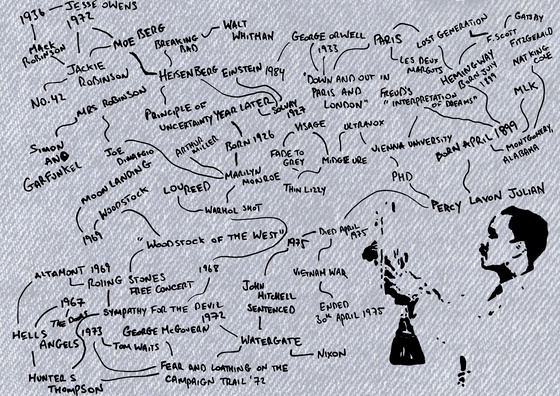 1936
JESSE OWENS
1972
MACK
ROBINSON
MOE BERG
BREAKING
BAD
WALT
WHITMAN
GEORGE ORWELL
1933
PARIS
LOST GENERATION
GATSBY
F. SCOTT
FITZGERALD
JACKIE
ROBINSON
NO. 42
HEISENBERG
EINSTEIN
1984
"DOWN AND OUT IN
PARIS AND
LONDON"
LES DEUX
MARGOTS
HEMINGWAY
BORN JULY
1899
NAT KING
COLE
MRS ROBINSON
PRINCIPLE OF
UNCERTAINTY
YEAR LATER
SOLVAY
1927
FREUD'S
"INTERPRETATION
OF DREAMS"
MLK
SIMON
AND
GARFUNKEL
JOE
DIMAGGIO
ARTHUR
MILLER
BORN 1926
VISAGE
ULTRAVOX
FADE TO
GREY
MIDGE URE
VIENNA UNIVERSITY
BORN APRIL 1899
MONTGOMERY
ALABAMA
MOON LANDING
WOODSTOCK
1969
LOU REED
MARILYN
MONROE
THIN LIZZY
PHD
WARHOL SHOT
PERCY LAVON JULIAN
"WOODSTOCK OF THE WEST"
1975
DIED APRIL
1975
ALTAMONT 1969
ROLLING STONES
FREE CONCERT
1968
VIETNAM WAR
1967
THE DOORS
SYMPATHY FOR THE DEVIL
1972
JOHN
MITCHELL
SENTENCED
ENDED
30th APRIL 1975
HELLS
ANGELS
1973
GEORGE McGOVERN
TOM WAITS
WATERGATE
NIXON
HUNTER S
THOMPSON
FEAR AND LOATHING ON THE
CAMPAIGN TRAIL '72